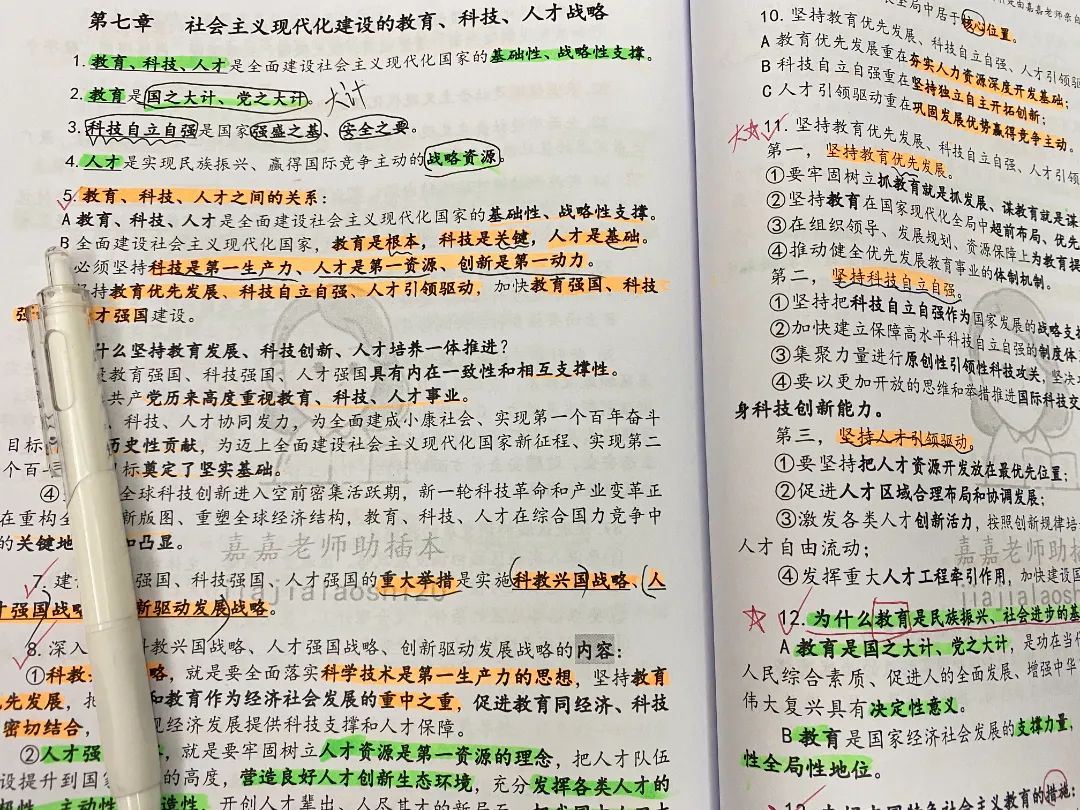 第七章 社会主义现代化建设的教育、科技、人才战略
1. 教育、科技、人才是全面建设社会主义现代化国家的基础性、战略性支撑。
2. 教育是国之大计、党之大计。大计
3. 科技自立自强是国家强盛之基、安全之要。
4. 人才是实现民族振兴、赢得国际竞争主动的战略资源。
5. 教育、科技、人才之间的关系：
A 教育、科技、人才是全面建设社会主义现代化国家的基础性、战略性支撑。
B 全面建设社会主义现代化国家，教育是根本，科技是关键，人才是基础。
必须坚持科技是第一生产力、人才是第一资源、创新是第一动力。
坚持教育优先发展、科技自立自强、人才引领驱动，加快教育强国、科技
强 才强国建设。
什么坚持教育发展、科技创新、人才培养一体推进？
教育强国、科技强国、人才强国具有内在一致性和相互支撑性。
共产党历来高度重视教育、科技、人才事业。
、科技、人才协同发力，为全面建成小康社会、实现第一个百年奋斗
目标 历史性贡献，为迈上全面建设社会主义现代化国家新征程、实现第二
个百 标奠定了坚实基础。
④ 全球科技创新进入空前密集活跃期，新一轮科技革命和产业变革正
在重构全 新版图、重塑全球经济结构，教育、科技、人才在综合国力竞争中
的关键地 和凸显。
嘉嘉老师助插本
7. 建 强国、科技强国、人才强国的重大举措是实施科教兴国战略、人
才强国战略 新驱动发展战略。
jiajialaoshizb
8. 深入 科教兴国战略、人才强国战略、创新驱动发展战略的内容：
①科教 略，就是要全面落实科学技术是第一生产力的思想，坚持教育
优先发展，把 和教育作为经济社会发展的重中之重，促进教育同经济、科技
密切结合， 现经济发展提供科技支撑和人才保障。
②人才强 ，就是要牢固树立人才资源是第一资源的理念，把人才队伍
设提升到国家 的高度，营造良好人才创新生态环境，充分发挥各类人才的
极性、主动性 造性，开创人才辈出、人尽其才的新局面
10. 坚持教育优先发展、科技自立自强、人才引领驱
全局中居于核心位置。
A 教育优先发展重在夯实人力资源深度开发基础；
B 科技自立自强重在坚持独立自主开拓创新；
C 人才引领驱动重在巩固发展优势赢得竞争主动。
大 11. 坚持教育优先发展、科技自立自强、人才引领
第一，坚持教育优先发展。
①要牢固树立抓教育就是抓发展、谋教育就是谋
②坚持教育在国家现代化全局中超前布局、优先
③在组织领导、发展规划、资源保障上为教育提
④推动健全优先发展教育事业的体制机制。
第二，坚持科技自立自强。
①坚持把科技自立自强作为国家发展的战略支
②加快建立保障高水平科技自立自强的制度体
③集聚力量进行原创性引领性科技攻关，坚决
④要以更加开放的思维和举措推进国际科技交
身科技创新能力。
第三，坚持人才引领驱动。
①要坚持把人才资源开发放在最优先位置；
②促进人才区域合理布局和协调发展；
③激发各类人才创新活力，按照创新规律培
人才自由流动；
嘉嘉老师助插
④发挥重大人才工程牵引作用，加快建设国
jiajialaosh
12. 为什么教育是民族振兴、社会进步的基
A 教育是国之大计、党之大计，是功在当
人民综合素质、促进人的全面发展、增强中华
伟大复兴具有决定性意义。
B 教育是国家经济社会发展的支撑力量，
性全局性地位。